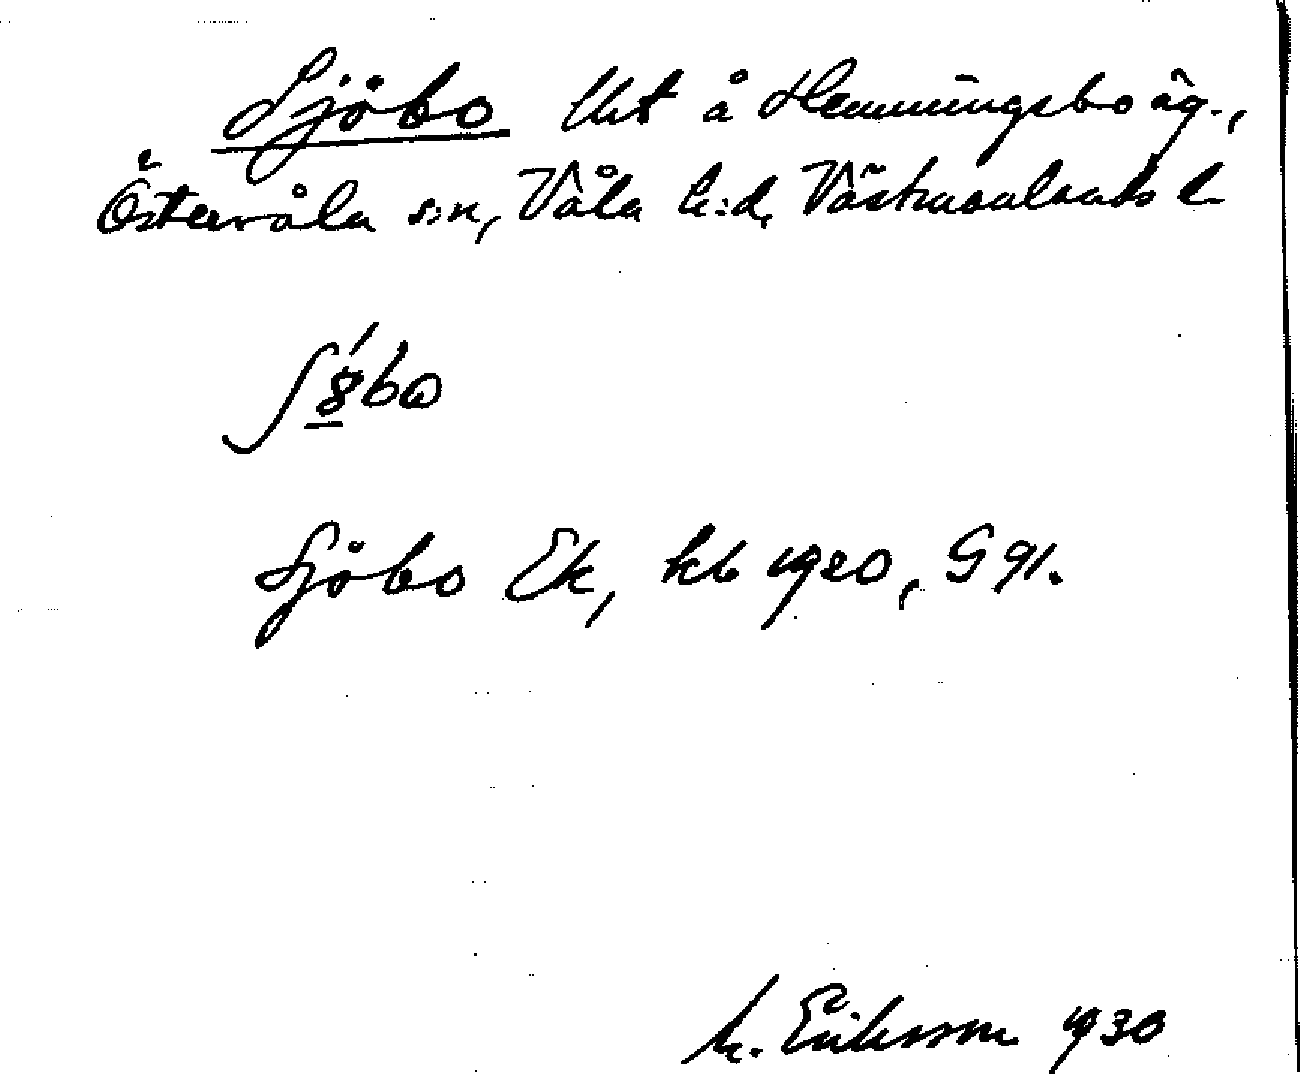 Sjöbo lht å Hemmingsbo äg.,
Östervåla s:n, Våla h:d, Västmanlands l.
Sjöbo Ek, kb 1920, S 91.
M. Eriksson 1930